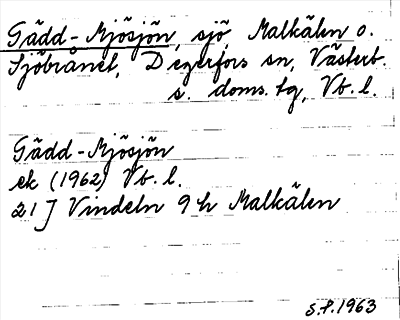 Gädd-Mjösjön, sjö, Malkälen o.
Sjöbrånet, Degerfors sn, Västerb.
s. doms. tg, Vb. l.
Gädd-Mjösjön
ek (1962) Vb. l.
21J Vindeln 9h Malkälen
S.P. 1963